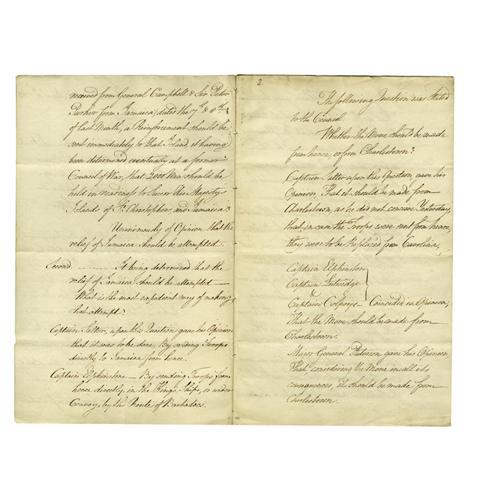 received from General Campbell & Sir Peter
Parker from Jamaica, dated the
of last Month, a Reinforcement should be
sent immediately to that Island, it having
been determined eventually at a former
Council of War, that 2000 Men should be
held in readiness to the Majesty's
Islands of St. Christophers and Jamaica?
Unanimously of Opinion that the
relief of Jamaica should be attempted.
Second It being determined that the
relief of Jamaica should be attempted
What is the most expedient way of making
that attempt?
Captain Salter, upon this Question gave his Opinion
that it was to be done, By sending Troops
directly to Jamaica from hence.
Captain Elphinstone By sending Troops from
hence directly, in the Kings Ships, or under
Convoy, by the Route of Barbadoes.
2
The following Question was Stated
to the Council
Whether the Move should be made
from hence, or from Charlestown?
Captain Salter upon this Question, gave his
Opinion, That it should be made from
Charlestown, as he did not conceive
that, in case the Troops were not from hence,
they were to be Replaced from Carolina.
Captain Elphinstone
Captain
Captain Colpoys Coincided in Opinion,
That the Move should be made from
Charlestown.
Major General Paterson gave his Opinion
That considering the Move in all its
consequences, It should be made from
Charlestown.